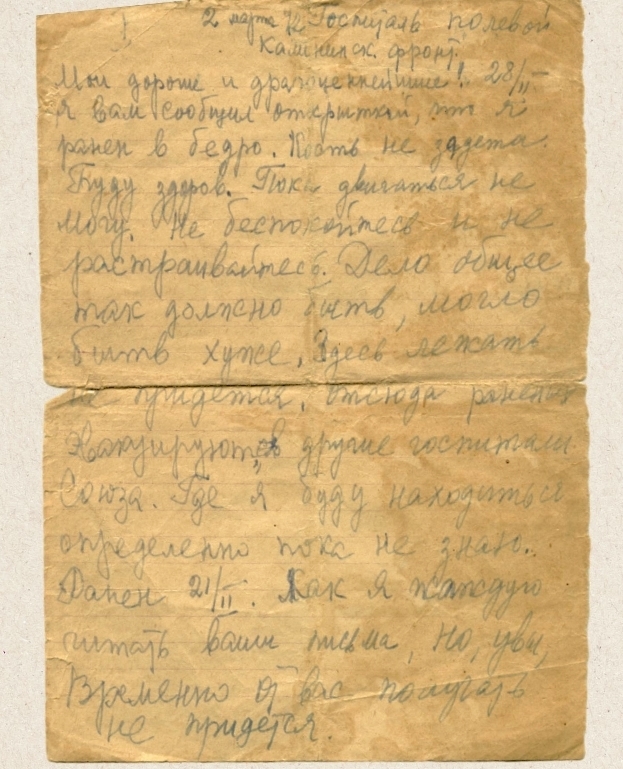 2 марта 42 Госпиталь полевой
Калининск. фронт.
Мои дорогие и драгоценнейшие! 28/II
я вам сообщил открыткой, что я
ранен в бедро. Кость не задета.
Буду здоров. Пока двигаться не
могу. Не беспокойтесь и не
растраивайтесь. Дело общее
так должно быть, могло
быть хуже, Здесь лежать
не придется, отсюда раненых
эвакуируют в другие госпитали
Союза. Где я буду находиться
определенно пока не знаю.
Ранен 21/II. Как я жажду
читать ваши письма, но, увы,
Временно от вас получать
не придется.